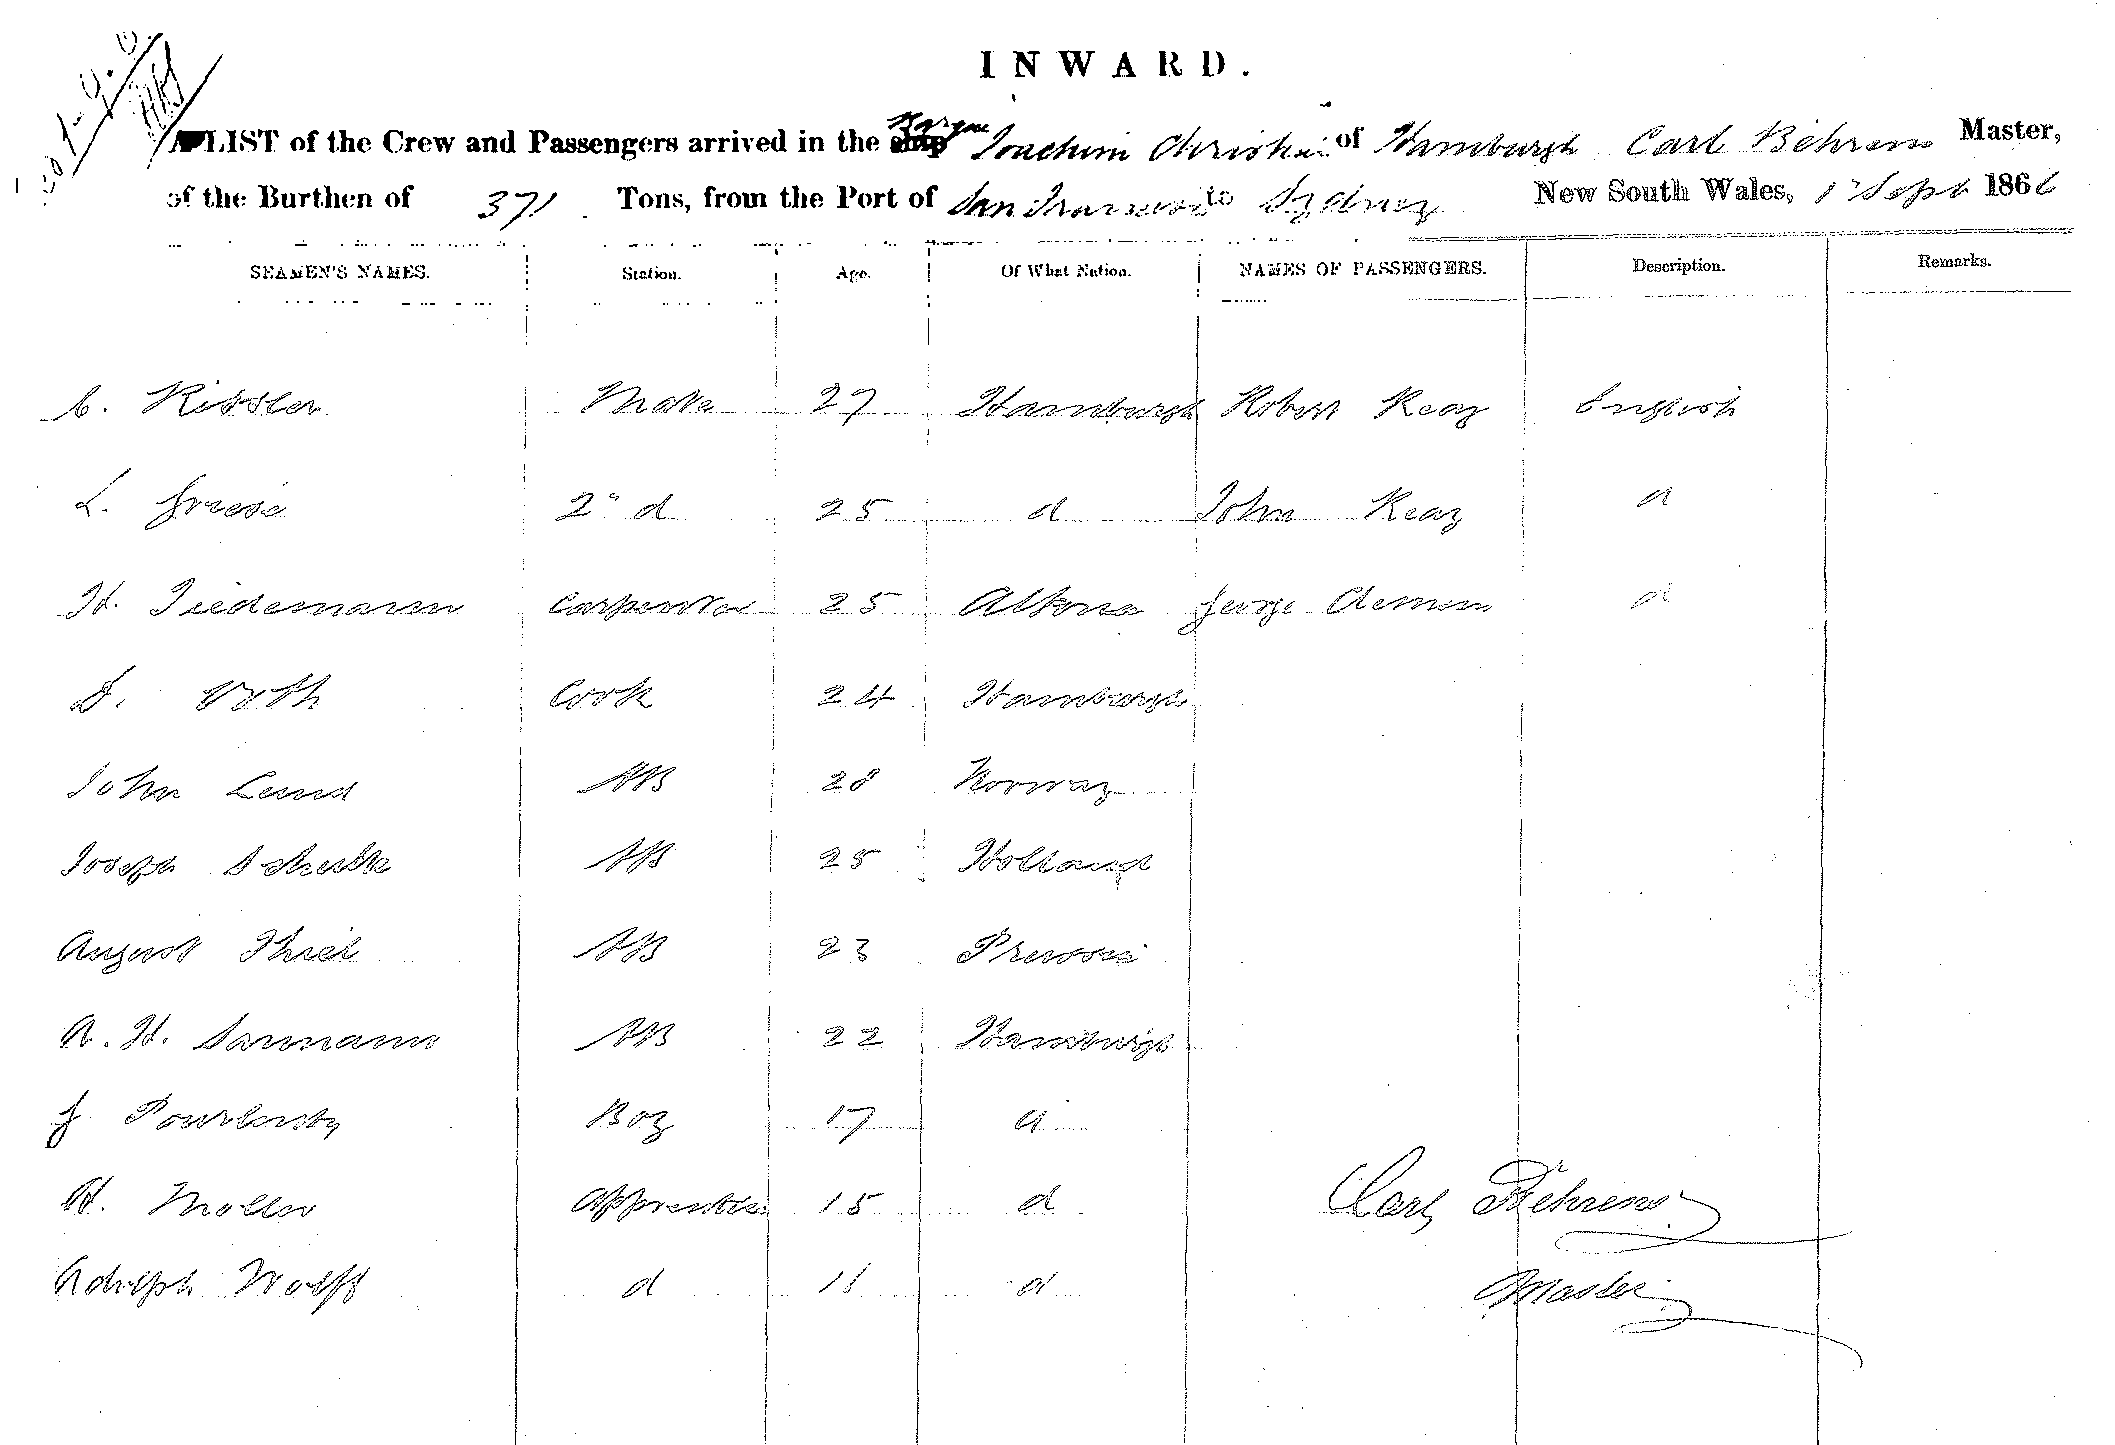 INWARD.
A LIST of the Crew and Passengers arrived in the Barque Joachim Christian of Hamburgh Carl Behrens Master,
of the Burthen of 371 Tons, from the Port of San Francisco to Sydney New South Wales, 1 Sept 1866
SEAMEN'S NAMES. Station. Age. Of What Nation. NAMES OF PASSENGERS. Description. Remarks.
C. Kissler Mate 27 Hamburgh Robert Keay English
L. Griese 2" d 25 d John Keay d
H. Tiedemann Carpenter 25 Altona George Clemen d
D. Voth Cook 24 Hamburgh
John Lund AB 28 Norway
Joseph AB 25 Holland
August Thiel AB 23 Prussia
A. H. Sarmann AB 22 Hamburgh
J. Boy 17 d
H. Moller Apprentice 15 d
Adolph Wolff d 16 d
Carl Behrens
Master